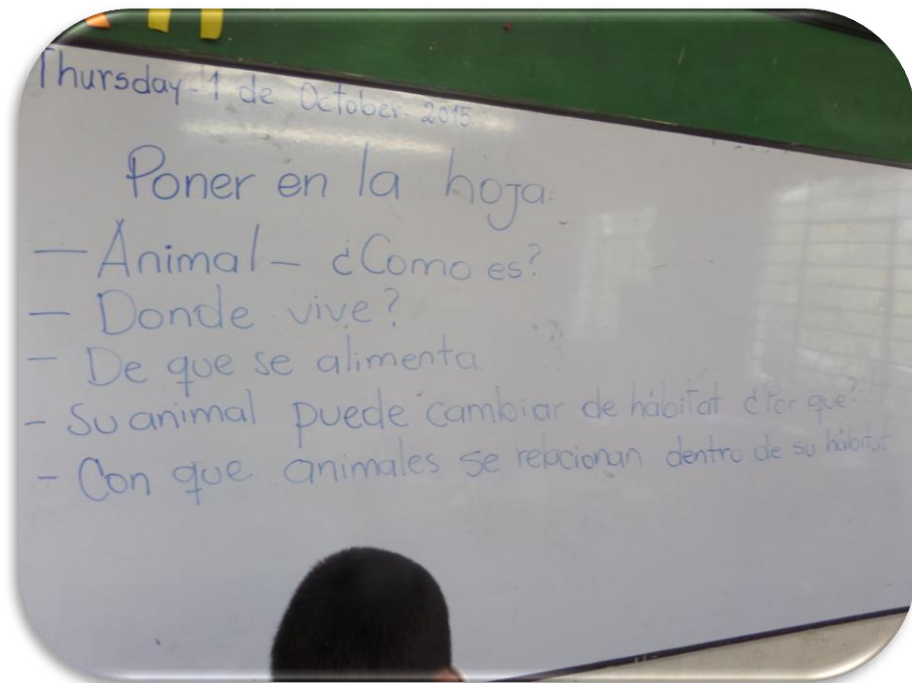 Thursday-1 de October-2015
Poner en la hoja:
- Animal - ¿Como es?
- Donde vive?
- De que se alimenta
- Su animal puede cambiar de hábitat ¿Por que?
- Con que animales se relacionan dentro de su hábitat